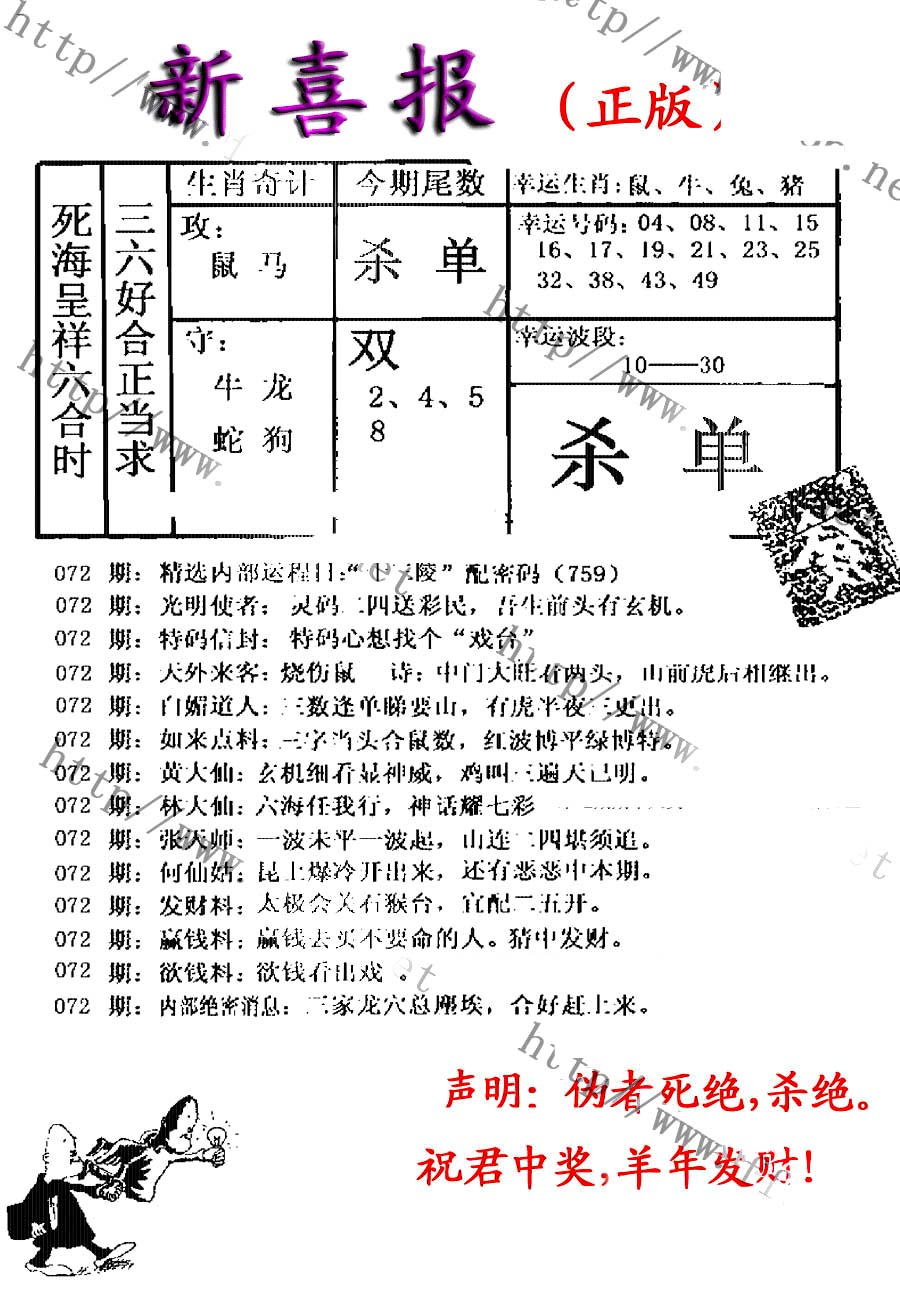 新喜报（正版）
死海呈祥六合时
三六好合正当求
生肖奇计
攻：
鼠 马
守：
牛 龙
蛇 狗
今期尾数
杀 单
双
2、4、5
8
幸运生肖：鼠、牛、兔、猪
幸运号码：04、08、11、15
16、17、19、21、23、25
32、38、43、49
幸运波段：
10——30
杀 单
072 期：精选内部运程日：“十三陵”配密码（759）
072 期：光明使者： 灵码二四送彩民，吾生前头有玄机。
072 期：特码信封： 特码心想找个“戏台”
072 期：天外来客：烧伤鼠 诗：中门大旺看两头，山前虎后相继出。
072 期：白媚道人：三数逢单睇要山，有虎半夜三更出。
072 期：如来点料：三字当头合鼠数，红波博平绿博特。
072 期：黄大仙：玄机细看显神威，鸡叫三遍天已明。
072 期：林大仙：六海任我行，神话耀七彩
072 期：张天师：一波未平一波起，山连二四堪须追。
072 期：何仙姑：昆上爆冷开出来，还有恶恶中本期。
072 期：发财料：太极会关石猴台，宜配二五开。
072 期：赢钱料：赢钱去买不要命的人。猜中发财。
072 期：欲钱料：欲钱看出戏 。
072 期：内部绝密消息：三家龙穴总塵埃，合好赶上来。
声明：伪者死绝,杀绝。
祝君中奖,羊年发财!